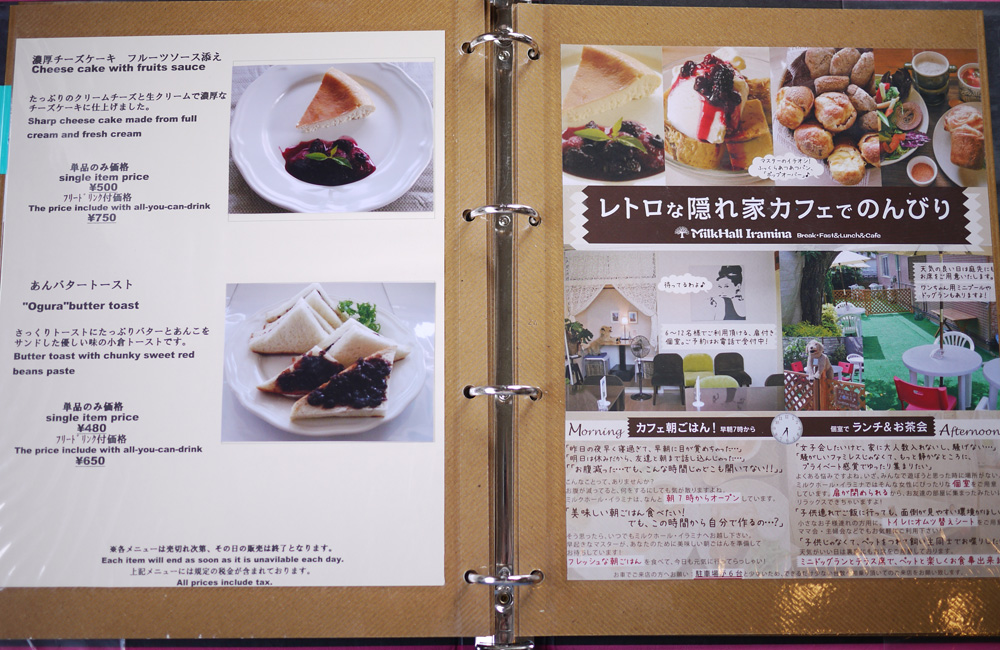 濃厚チーズケーキ　フルーツソース添え
Cheese cake with fruits sauce
たっぷりのクリームチーズと生クリームで濃厚な
チーズケーキに仕上げました。
Sharp cheese cake made from full
cream and fresh cream
単品のみ価格
single item price
¥500
フリードリンク付価格
The price include with all-you-can-drink
¥750
あんバタートースト
"Ogura"butter toast
さっくりトーストにたっぷりバターとあんこを
サンドした優しい味の小倉トーストです。
Butter toast with chunky sweet red
beans paste
単品のみ価格
single item price
¥480
フリードリンク付価格
The price include with all-you-can-drink
¥650
※各メニューは売切れ次第、その日の販売は終了となります。
Each item will end as soon as it is unavilable each day.
上記メニューには規定の税金が含まれております。
All prices include tax.
マスターのイチオシ!
ふっくらあつあつパン。
「ポップオーバー」♪
レトロな隠れ家カフェでのんびり
MilkHall Iramina Break・Fast&Lunch&Cafe
待ってるわよ♪
6〜12名様でご利用頂ける、扉付き
個室。ご予約はお電話で受付中!
天気の良い日は庭先にも
お席をご用意いたします。
ワンちゃん用ミニプールや
ドッグランもありますよ!
Morning カフェ朝ごはん! 早朝7時から
「昨日の夜早く寝過ぎて、早朝に目が覚めちゃった…」
「明日は休みだから、友達と朝まで話し込んじゃった…」
「お腹減った…でも、こんな時間じゃどこも開いてない!!」
こんなことって、ありませんか?
お腹が減ってると、何をするにしても気が散りますよね。
ミルクホール・イラミナは、なんと 朝7時からオープンしています。
「美味しい朝ごはん食べたい!
でも、この時間から自分で作るの…?」
そう思ったら、いつでもミルクホール・イラミナへお越し下さい。
早起きなマスターが、あなたのために美味しい朝ごはんを準備して
お待ちしています!
フレッシュな朝ごはんを食べて、今日も元気に行ってらっしゃい!
個室で ランチ&お茶会 Afternoon
「女子会したいけど、家に大人数入れないし、騒げない…」
「騒がしいファミレスじゃなくて、もっと静かなところに、
プライベート感覚でゆったり集まりたい」
リラックスできちゃいますよ!
「子供連れでご飯に行っても、面倒が見やすい環境が
トイレにオムツ替えシート
お車でご来店の方へお願い 駐車場が6台